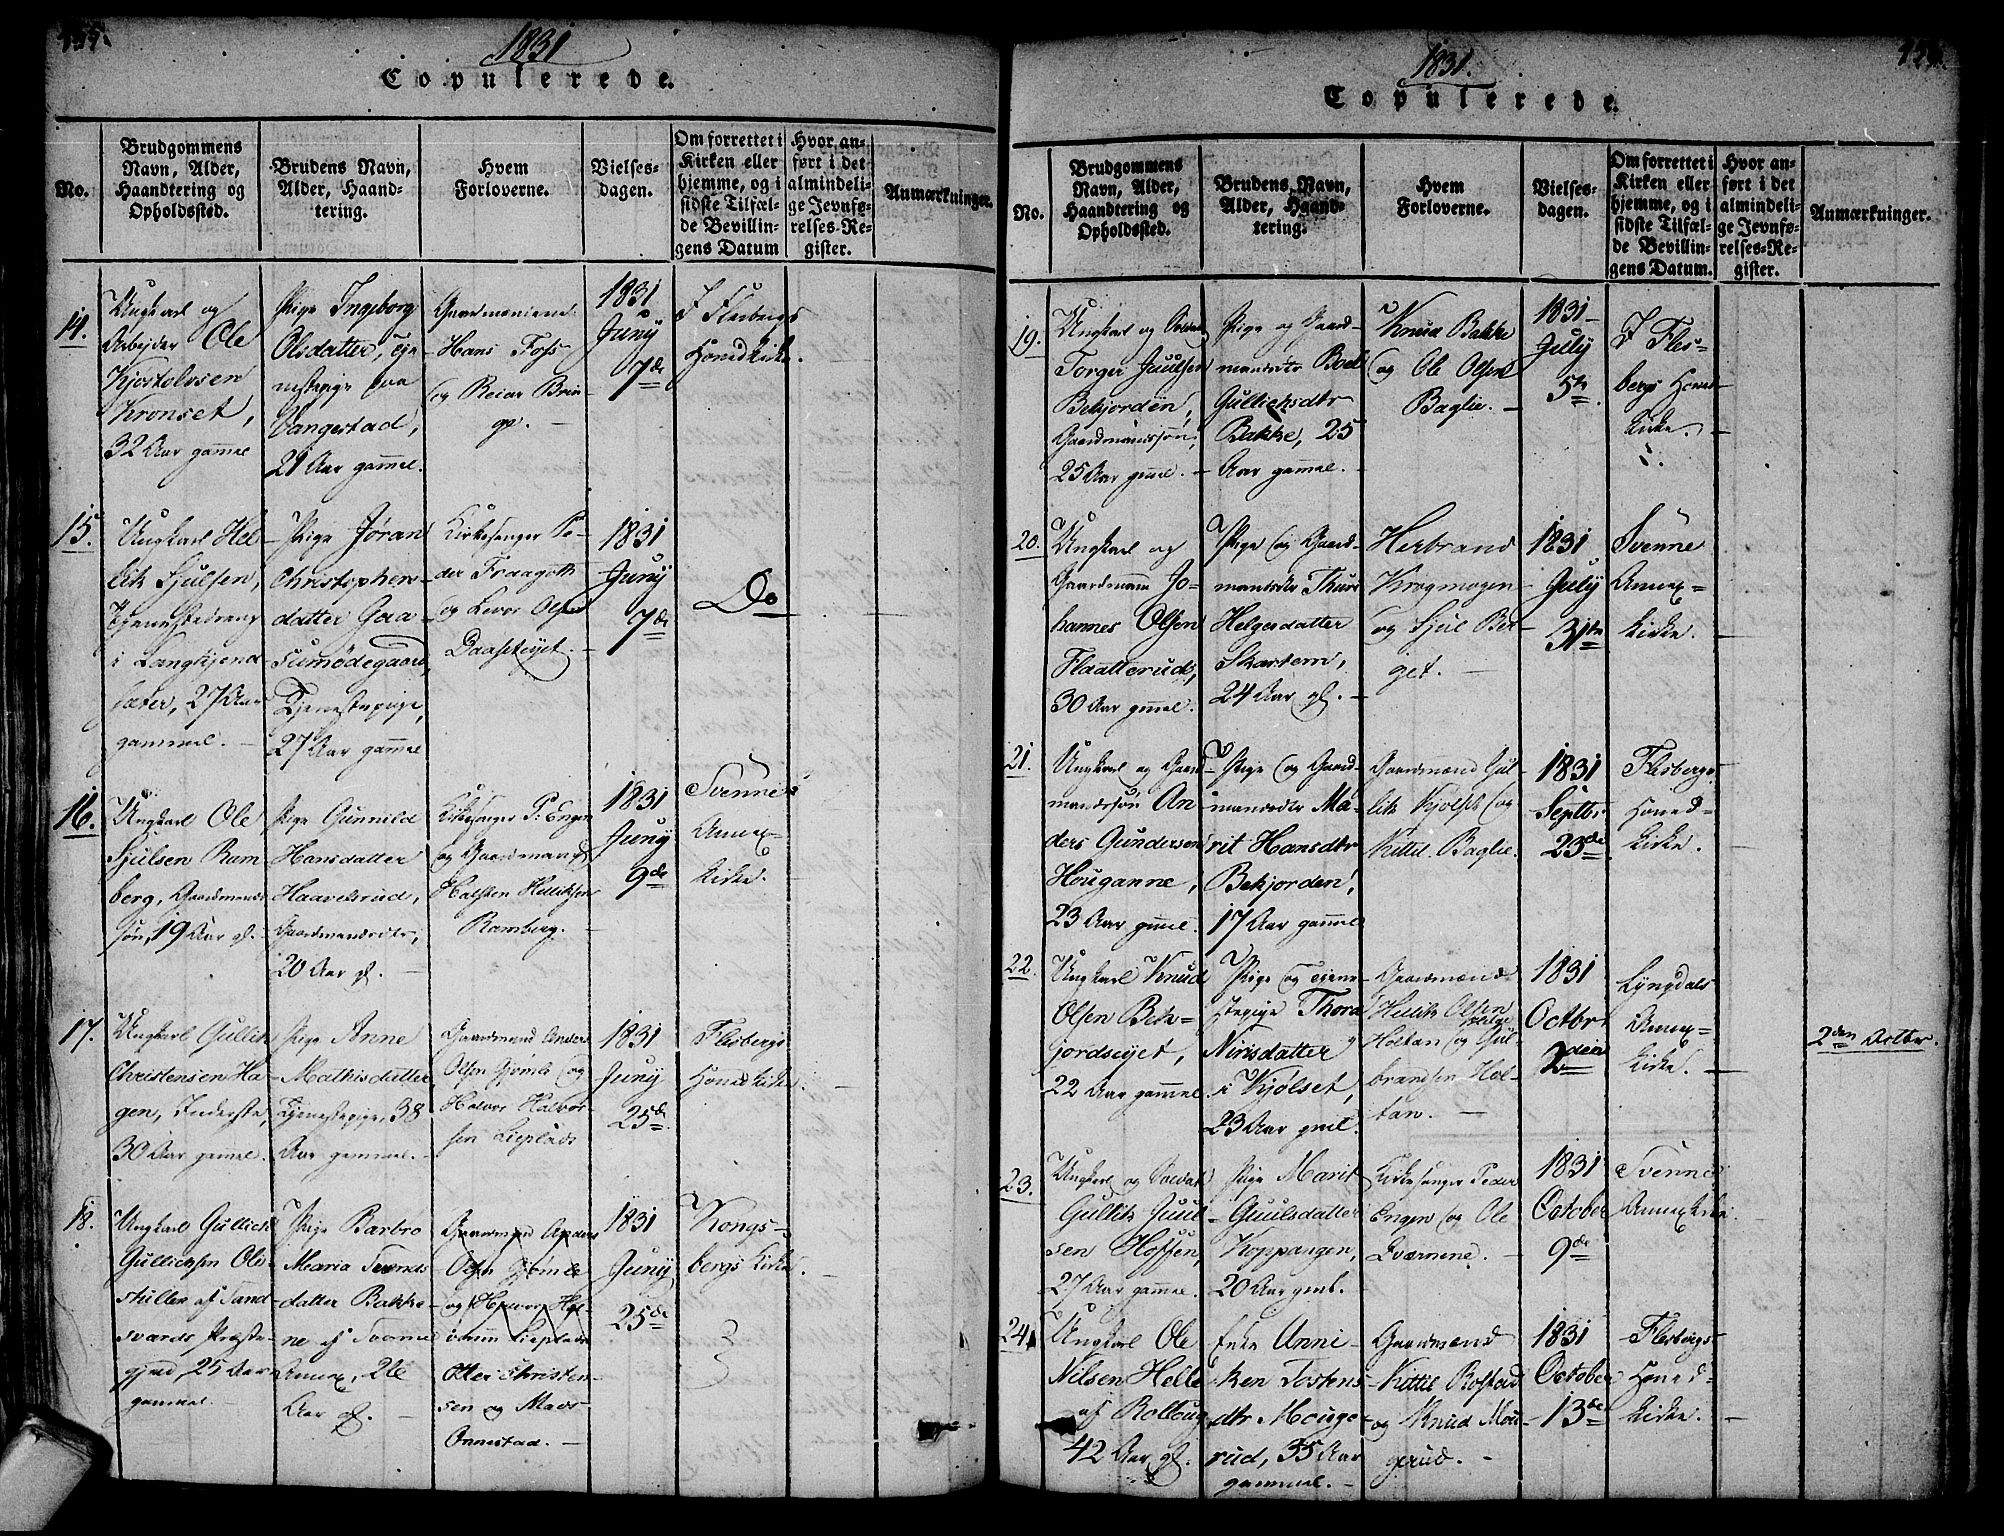 1831
Copulerede.
No.
Brudgommens
Navn, Alder,
Haandtering og
Opholdssted.
Brudens Navn,
Alder, Haand-
tering.
Hvem
Forloverne.
Vielses-
dagen.
Om forrettet i
Kirken eller
hjemme, og i
sidste Tilfæl-
de Bevillin-
gens Datum
Hvor an-
ført i det
almindeli-
ge Jevnfø-
relses-Re-
gister.
Anmærkninger.
14.
Ungkarl og
Arbejder Ole
Kjøstolvsen
Kronset,
32 Aar gammel
Pige Ingeborg
Olsdatter, Tje-
nestepige paa
Vangestad,
21 Aar gammel.
Gaardmændene
Hans Foss
og Reiar Brin-
ge. -
1831
Juny
7de
I Flesbergs
Hovedkirke.
15.
Ungkarl Hel-
lik Sjulsen,
Tjenestedreng
i Langkjend
sæter, 27 Aar
gammel. -
Pige Jøran
Christophers-
datter Gaa-
sumødegaard,
Tjenestepige,
27 Aar gammel
Kirkesanger Pe-
der Fraagoth
og Levor Olsen
Daaseteiet. -
1831
Juny
7de
Do
16.
Ungkarl Ole
Sjulsen Ram-
berg, Gaardmands
søn, 19 Aar gl. -
Pige Gunnild
Hansdatter
Haavelsrud,
Gaardmandsdtr,
20 Aar gl. -
Kirkesanger P: Engen
og Gaardmand
Halsten Helliksen
Ramberg. -
1831
Juny
9de
Svenne
Annex-
kirke.
17.
Ungkarl Gullik
Christensen Ha-
gen, Inderste,
30 Aar gammel.
Pige Anne
Mathisdatter
Tjenestepige, 38
Aar gammel. -
Gaardmænd Anders
Olsen Gjomle og
Halvor Halvor-
sen Lieplads
1831
Juny
25de
Flesbergs
Hovedkirke.
18.
Ungkarl Gullick
Gullichsen Ole-
stullen af Sand-
sværds Præste-
gjeld, 25 Aar
gammel. -
Pige Barbro
Maria Tvonds-
datter Bakke-
ne af Svenne
Annex, 26
Aar gl. -
Gaardmænd Anders
Olsen Gjomle
og Halvor Hal-
Lieplads
Otter Christen-
sen og Mads
Onnestad. -
1831
Juny
25de
Kongs-
bergs Kirke.
1831.
Copulerede.
No.
Brudgommens
Navn, Alder,
Haandtering og
Opholdssted.
Brudens Navn,
Alder, Haand-
tering.
Hvem
Forloverne.
Vielses-
dagen.
Om forrettet i
Kirken eller
hjemme, og i
sidste Tilfæl-
de Bevillin-
gens Datum.
Hvor an-
ført i det
almindeli-
ge Jevnfø-
relses-Re-
gister.
Anmærkninger.
19.
Ungkarl og Soldat
Torger Juulsen
Bekjorden,
Gaardmandssøn,
25 Aar gmel. -
Pige og Gaard-
mandsdtr Boel
Gullichsdtr
Bakke, 25
Aar gammel. -
Knud Bakke
og Ole Olsen
Baglie. -
1831 -
July
5te
I Fles-
bergs Hoved-
kirke. -
20.
Ungkarl og
Gaardmann Jo-
hannes Olsen
Flaatterud,
30 Aar gmel.
Pige og Gaard-
mandsdtr Thuri
Helgesdatter
Skartem,
24 Aar gl. -
Herbrand
Krogmogen
og Sjul Ber-
get. -
1831
July
31te
Svenne
Annex-
kirke. -
21.
Ungkarl og Gaard-
mandssøn An-
ders Gundersen
Houganne,
23 Aar gmel.
Pige og Gaard-
mandsdtr Ma-
rit Hansdtr
Bekjorden,
17 Aar gammel
Gaardmænd Gul-
lik Kjølset og
Kittil Baglie.
1831
Septbr.
23de
Flesbergs
Hoved-
kirke. -
22.
Ungkarl Knud
Olsen Bek-
jordseiet,
22 Aar gammel.
Pige og Tjene-
stepige Thora
Nirisdatter
i Kjølset,
23 Aar gmel.
Gaardmænd
Hellik Olsen
Holtan og Gul-
brandsen Hol-
tan. -
1831
Octbr.
2den
Lyngdals
Annex-
kirke.
2den Octbr.
23.
Ungkarl og Soldat
Gullik Juul-
sen Hoffen,
27 Aar gammel.
Pige Marit
Guulsdatter
Koppangen,
20 Aar gml.
Kirkesanger Peder
Engen og Ole
Dværnene. -
1831
October
9de
Svenne
Annexkirke.
24.
Ungkarl Ole
Nilsen Helle
af Rolloug
42 Aar gl.
Enke Anni-
ken Tostens-
dtr Mouge-
rud, 35 Aar
gammel. -
Gaardmænd
Kittil Rostad
og Knud Mou-
gerud. -
1831
October
13de
Flesbergs
Hoved-
kirke. -